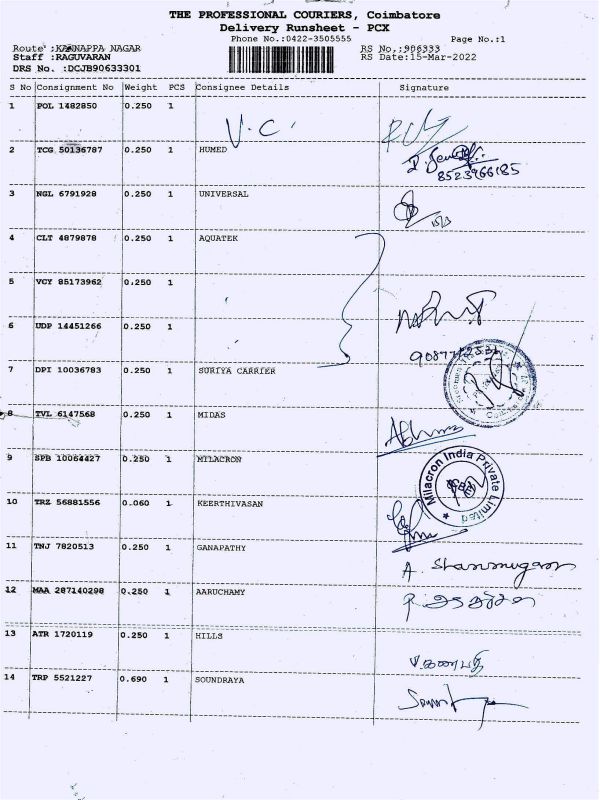 THE PROFESSIONAL COURIERS, Coimbatore
Delivery Runsheet - PCX
Phone No.:0422-3505555 Page No.:1
Route :KANNAPPA NAGAR RS No.:906333
Staff :RAGUVARAN RS Date:15-Mar-2022
DRS No. :DCJB90633301
S No Consignment No Weight PCS Consignee Details Signature
1 POL 1482850 0.250 1
V.C.
2 TCG 50136787 0.250 1 HUMED
8523966185
3 NGL 6791928 0.250 1 UNIVERSAL
15/3
4 CLT 4879878 0.250 1 AQUATEK
5 VCY 85173962 0.250 1
6 UDP 14451266 0.250 1
7 DPI 10036783 0.250 1 SURIYA CARRIER
8 TVL 6147568 0.250 1 MIDAS
9 SPB 10064427 0.250 1 MILACRON
Milacron India Private Limited
10 TRZ 56881556 0.060 1 KEERTHIVASAN
11 TNJ 7820513 0.250 1 GANAPATHY
A. Shanmugam
12 MAA 287140298 0.250 1 AARUCHAMY
13 ATR 1720119 0.250 1 HILLS
வ.கணபதி
14 TRP 5521227 0.690 1 SOUNDRAYA